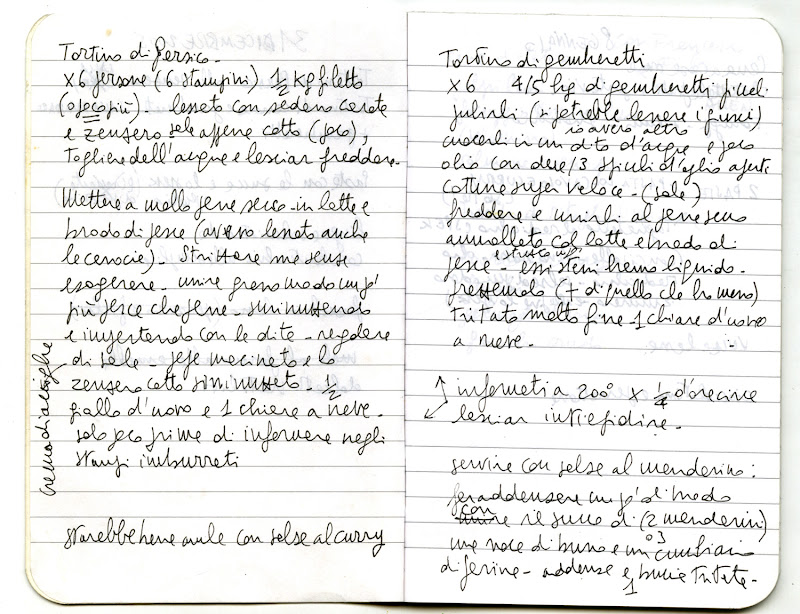 Tortino di Persico -
x 6 persone (6 stampini) 1/2 kg filetto
(o poco più) - lessato con sedano carote
e zenzero sale appena cotto (poco),
togliere dell'acqua e lasciar freddare.
Mettere a mollo pane secco in latte e
brodo di pesce (avevo lessato anche
le canocie) - Strizzare ma senza
esagerare - unire grosso modo un po'
più pesce che pane - sminuzzando
e impastando con le dita - regolare
di sale - pepe macinato e lo
zenzero cotto sminuzzato - 1/2
giallo d'uovo e 1 chiara a neve -
solo poco prima di infornare negli
stampi imburrati
starebbe bene anche con salsa al curry
crema di acciughe
Tortino di gamberetti
x 6 4/5 hg di gamberetti piccoli
pulirli (si potrebbe tenere i gusci)
io avevo altro
cuocerli in un dito d'acqua e poco
olio con due/3 spicchi d'aglio aperti
cottura super veloce - (sale)
freddare e unirli al pane secco
ammollato col latte e brodo di
e strizzato
pesce - essi steniranno liquido -
prezzemolo (+ di quello che ho messo)
tritato molto fine 1 chiara d'uovo
a neve -
infornati a 200° x 1/4 d'ora circa
lasciar intiepidire -
servire con salsa al mandarino:
far addensare un po' di brodo
con il succo di (2 mandarini)
una noce di burro e un cucchiaio
o 3
di farina - addensa e 1 buccia tritata -